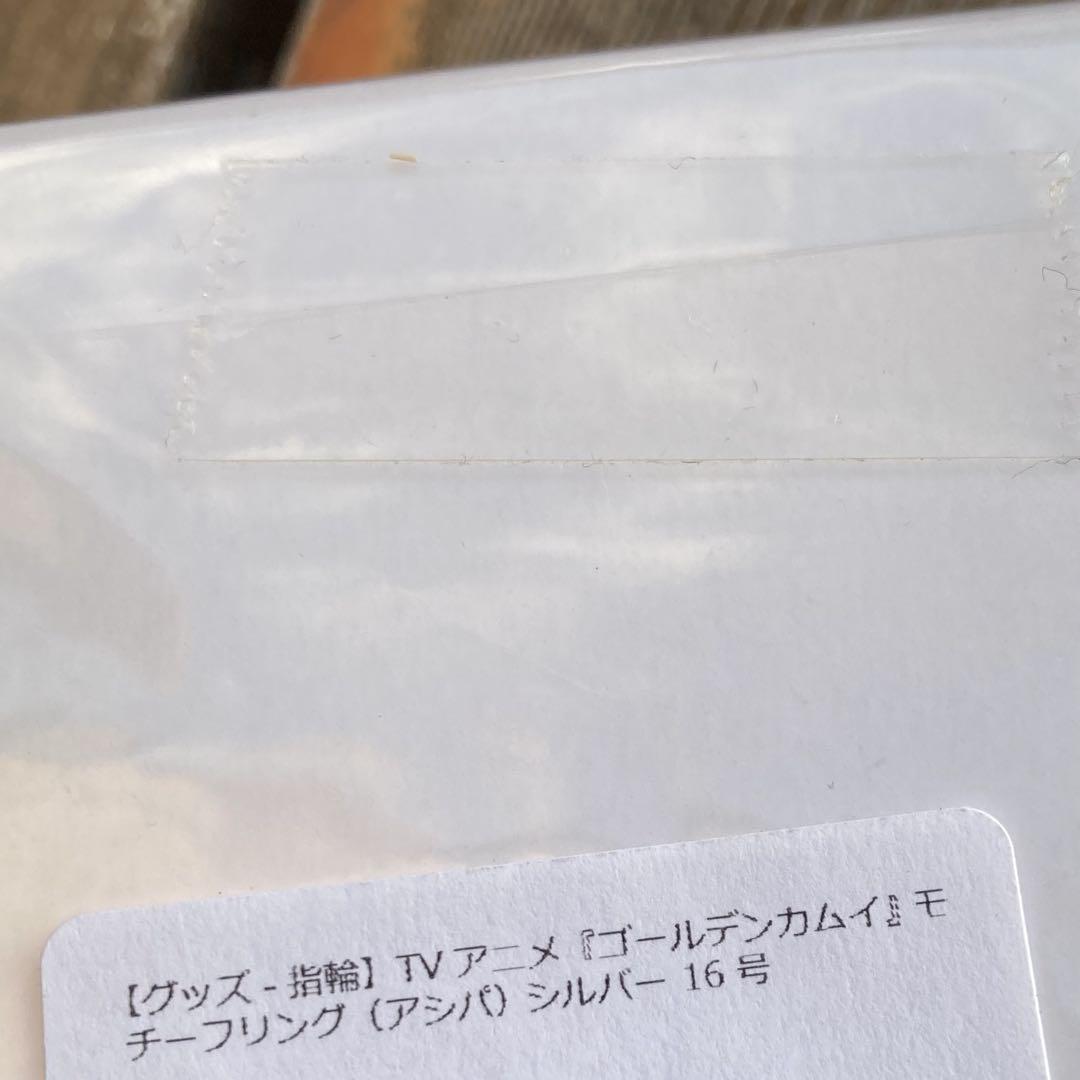 【グッズ-指輪】TVアニメ『ゴールデンカムイ』モ
チーフリング（アシパ）シルバー 16号